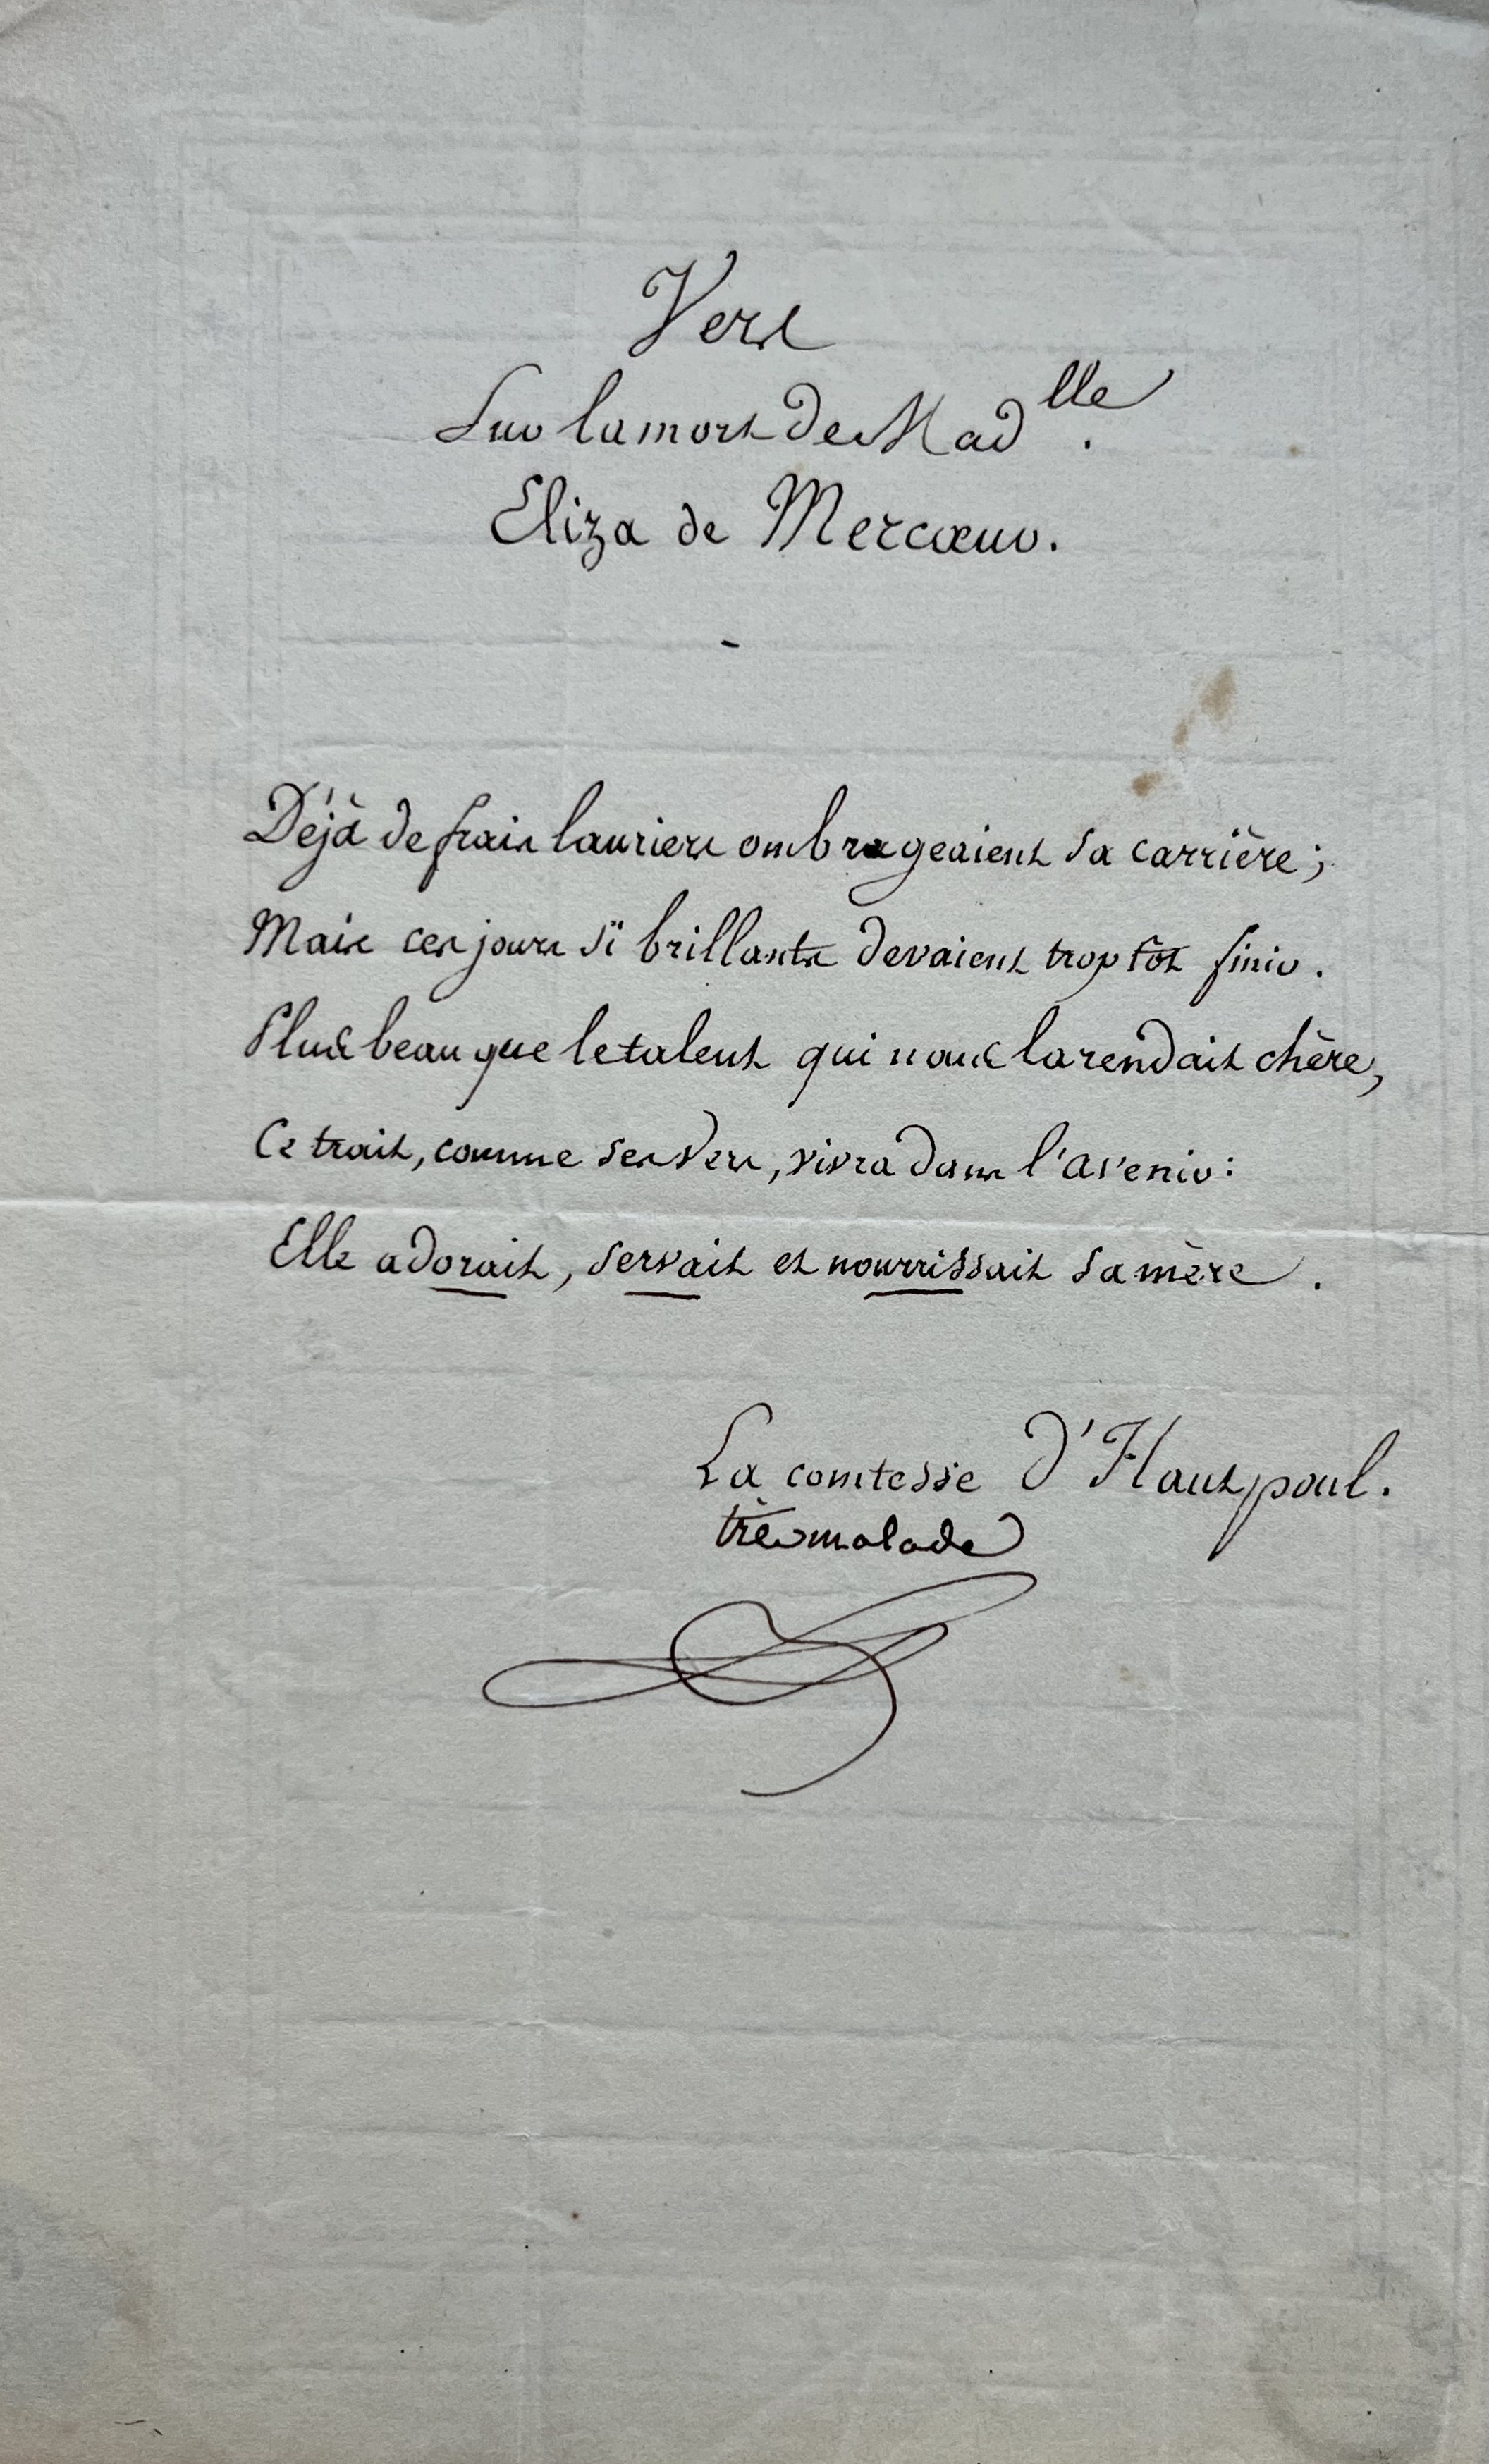 Vers
Sur la mort de Mad<sup>lle</sup>.
Eliza de Mercœur.
-
Déjà de frais lauriers ombrageaient sa carrière;
Mais ces jours si brillants devaient trop tôt finir.
Plus beau que le talent qui nous la rendait chère,
Ce trait, comme ses vers, vivra dans l'avenir:
Elle adorait, servait et nourrissait sa mère.
La comtesse d'Hautpoul.
très malade